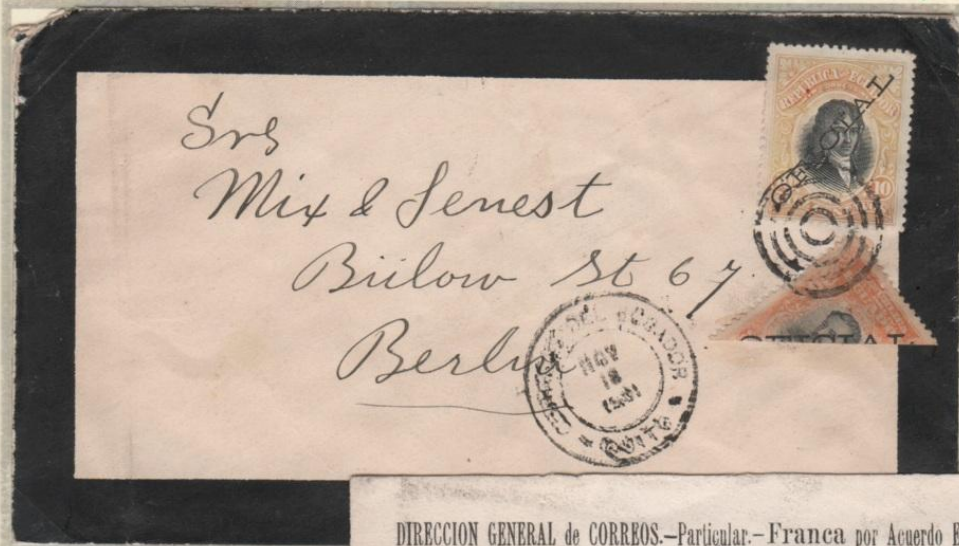 Srs
Mix & Genest
Bülow St 67
Berlin
REPUBLICA DEL ECUADOR
OFICIAL
10
OFICIAL
CORREOS DEL ECUADOR
NOV
18
QUITO
DIRECCION GENERAL de CORREOS.-Particular.-Franca por Acuerdo E